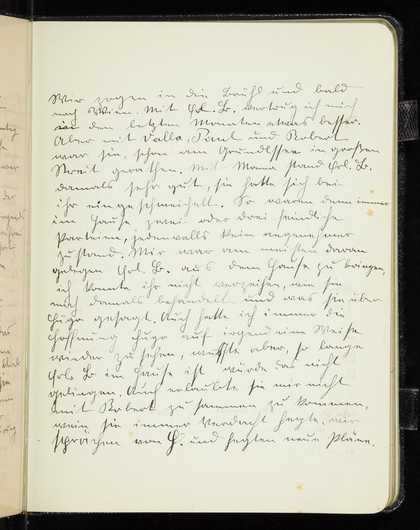 Wir zogen in die Brühl und bald
nach Wien. Mit Frl. Br. vertrug ich mich
in den letzten Monaten etwas besser.
Aber mit Valla, Paul und Robert
war sie schon am Grundlsee in großen
Streit geraten. Mit Mama stand Frl. Br.
damals sehr gut, sie hatte sich bei
ihr eingeschmeichelt. So waren denn immer
im Hause zwei oder drei feindliche
Parteien, jedenfalls kein angenehmer
Zustand. Mir war am meisten daran
gelegen Frl. B. aus dem Hause zu bringen,
ich konnte ihr nicht verzeihen, wie sie
mich damals behandelt und was sie über
Hugo gesagt. Auch hatte ich immer die
Hoffnung Hugo auf irgend eine Weise
wieder zu sehen, wußte aber, so lange
Frl. B. im Hause ist würde das nicht
gelingen. Auch erlaubte sie mir nicht
mit Robert zusammen zu kommen,
weil sie immer Verdacht hegte, wir
sprächen von H. und hegten neue Pläne.